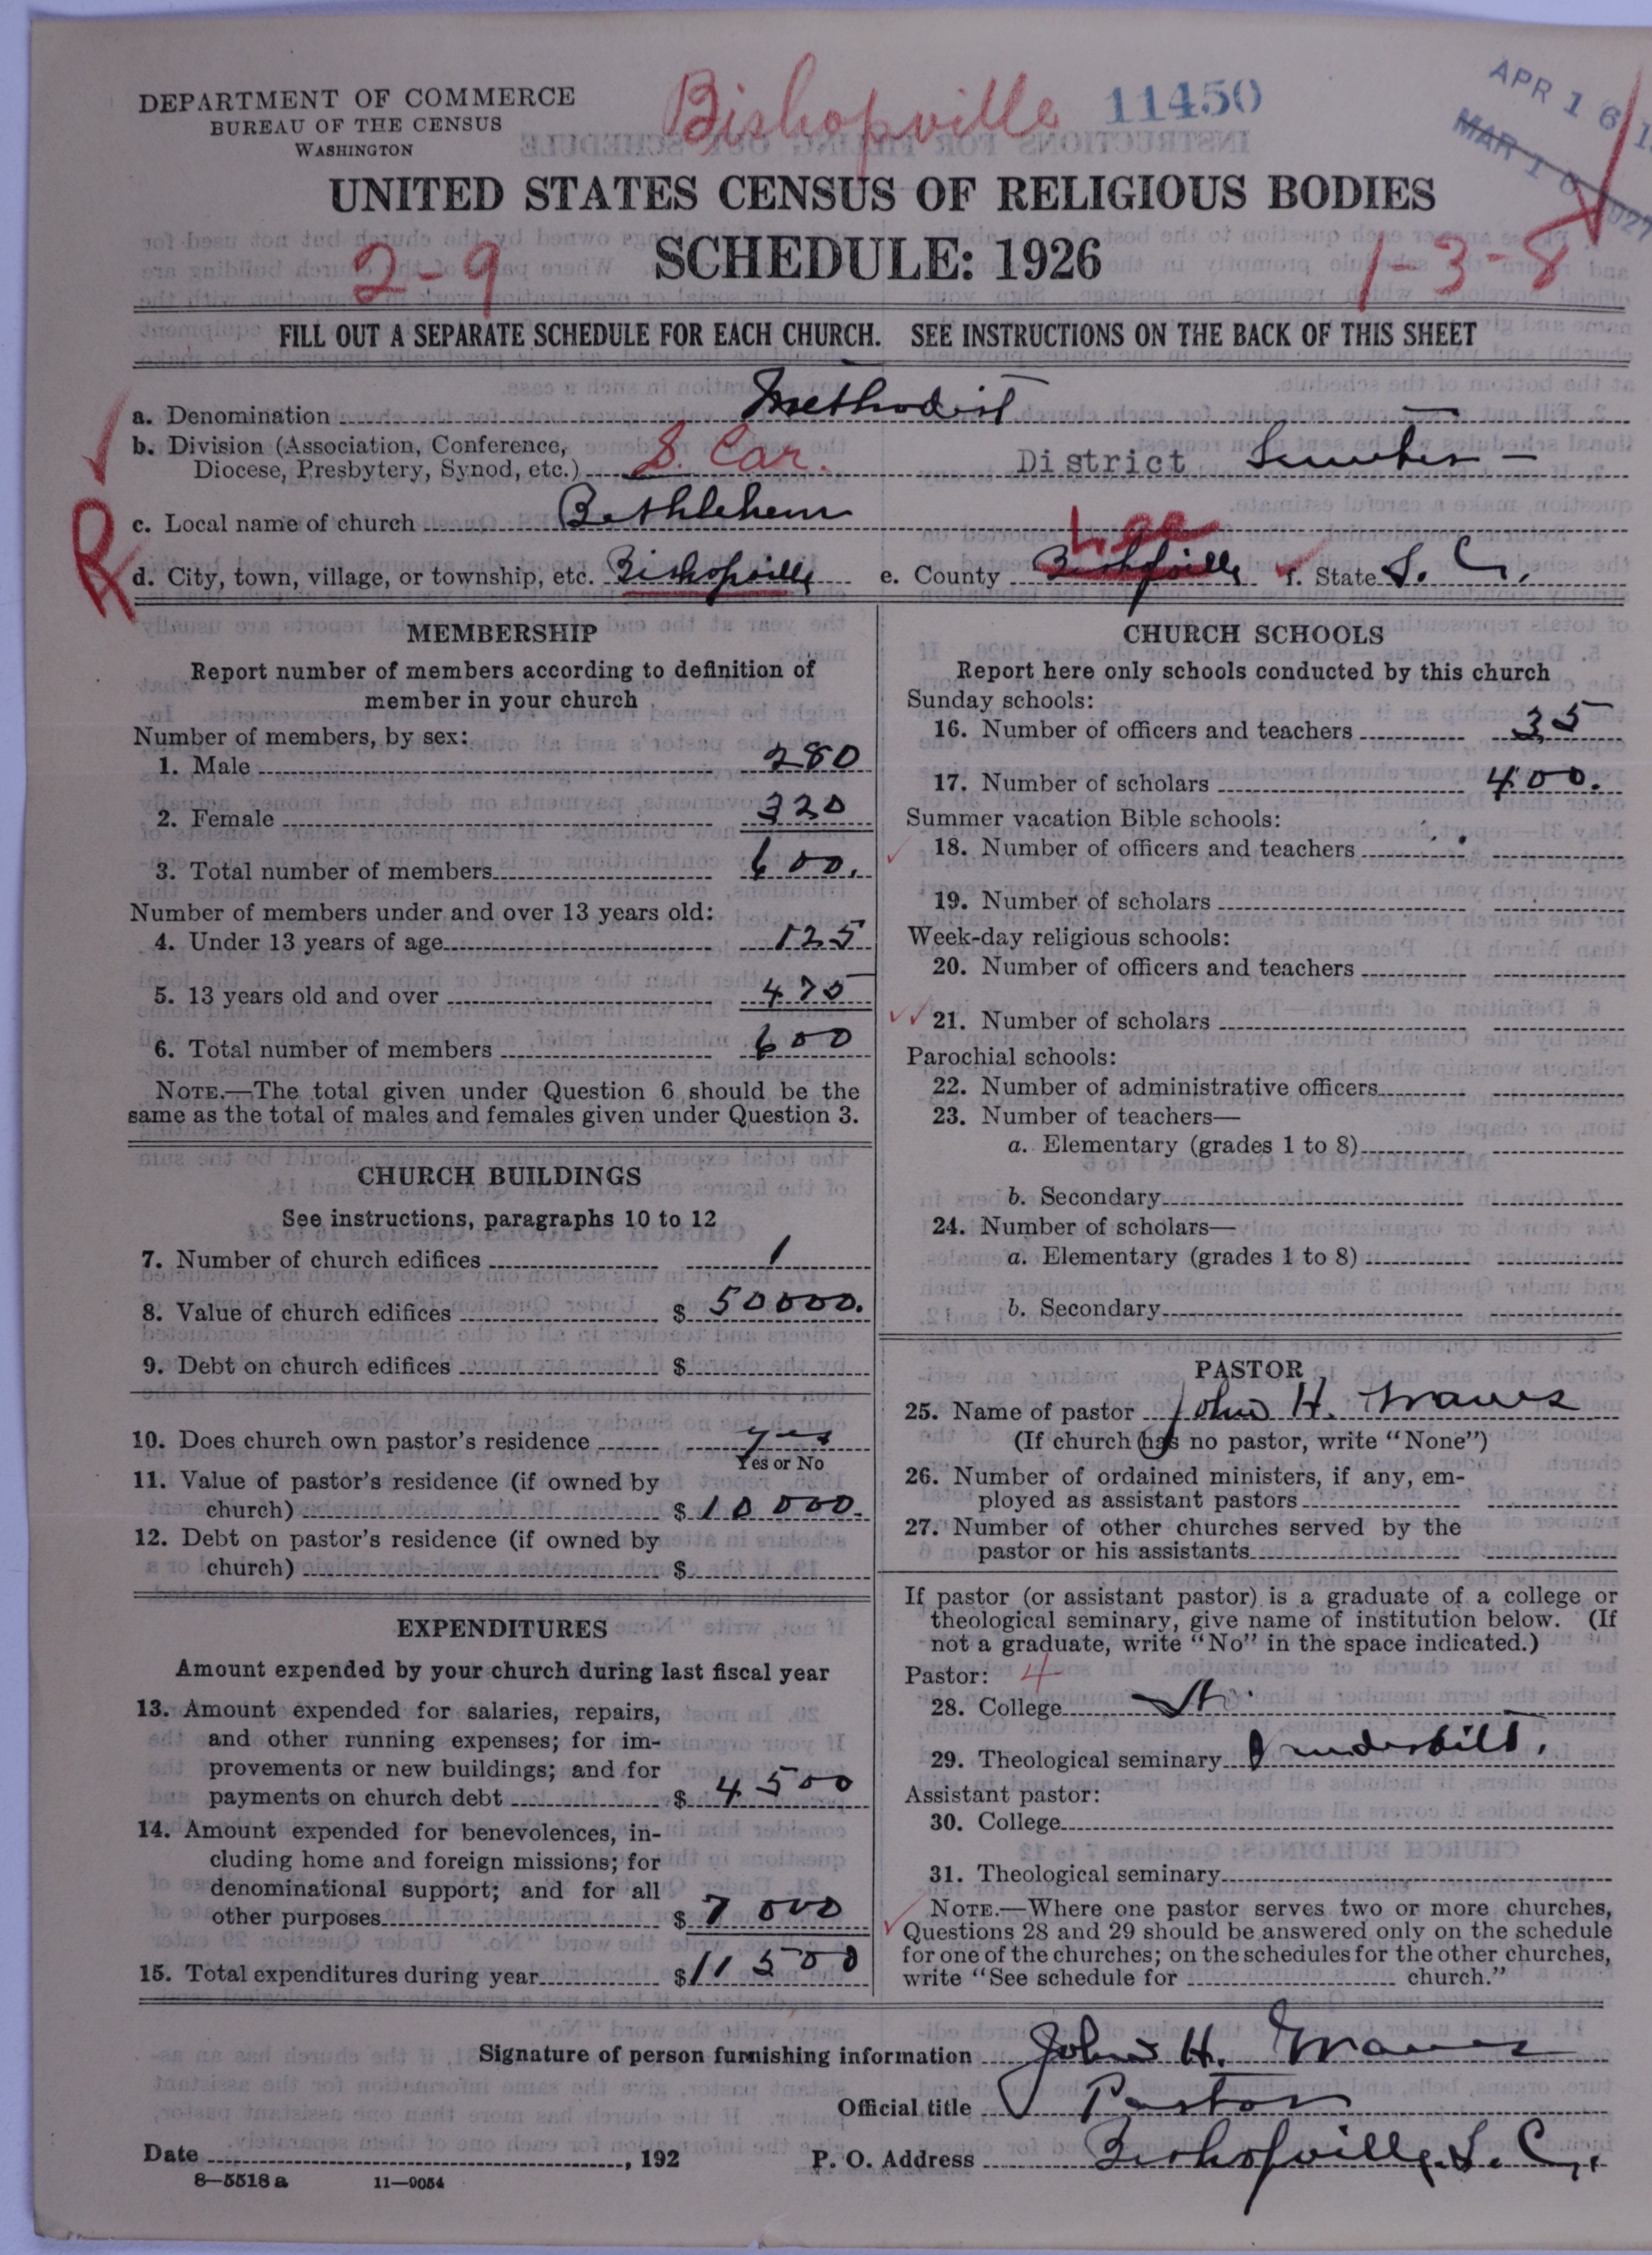 DEPARTMENT OF COMMERCE
BUREAU OF THE CENSUS
WASHINGTON
Bishopville 11450
APR 16
MAR 1
UNITED STATES CENSUS OF RELIGIOUS BODIES
SCHEDULE: 1926
2-9
1-3-8
FILL OUT A SEPARATE SCHEDULE FOR EACH CHURCH. SEE INSTRUCTIONS ON THE BACK OF THIS SHEET
a. Denomination Methodist
b. Division (Association, Conference,
Diocese, Presbytery, Synod, etc.) S. Car. District Sumter
c. Local name of church Bethlehem
Lee
d. City, town, village, or township, etc. Bishopville e. County Bishopville f. State S. C.
MEMBERSHIP
Report number of members according to definition of
member in your church
Number of members, by sex:
1. Male 280
2. Female 320
3. Total number of members 600.
Number of members under and over 13 years old:
4. Under 13 years of age 125
5. 13 years old and over 475
6. Total number of members 600
NOTE.—The total given under Question 6 should be the
same as the total of males and females given under Question 3.
CHURCH BUILDINGS
See instructions, paragraphs 10 to 12
7. Number of church edifices 1
8. Value of church edifices $ 50000.
9. Debt on church edifices $
10. Does church own pastor's residence yes
Yes or No
11. Value of pastor's residence (if owned by
church) $ 10000.
12. Debt on pastor's residence (if owned by
church) $
EXPENDITURES
Amount expended by your church during last fiscal year
13. Amount expended for salaries, repairs,
and other running expenses; for im-
provements or new buildings; and for
payments on church debt $ 4500
14. Amount expended for benevolences, in-
cluding home and foreign missions; for
denominational support; and for all
other purposes $ 7000
15. Total expenditures during year $ 11500
CHURCH SCHOOLS
Report here only schools conducted by this church
Sunday schools:
16. Number of officers and teachers 35
17. Number of scholars 400.
Summer vacation Bible schools:
18. Number of officers and teachers
19. Number of scholars
Week-day religious schools:
20. Number of officers and teachers
21. Number of scholars
Parochial schools:
22. Number of administrative officers
23. Number of teachers—
a. Elementary (grades 1 to 8)
b. Secondary
24. Number of scholars—
a. Elementary (grades 1 to 8)
b. Secondary
PASTOR
25. Name of pastor John H.
(If church has no pastor, write "None")
26. Number of ordained ministers, if any, em-
ployed as assistant pastors
27. Number of other churches served by the
pastor or his assistants
If pastor (or assistant pastor) is a graduate of a college or
theological seminary, give name of institution below. (If
not a graduate, write "No" in the space indicated.)
Pastor: 4
28. College
29. Theological seminary Vanderbilt.
Assistant pastor:
30. College
31. Theological seminary
NOTE.—Where one pastor serves two or more churches,
Questions 28 and 29 should be answered only on the schedule
for one of the churches; on the schedules for the other churches,
write "See schedule for church."
Signature of person furnishing information John H.
Official title Pastor
Date , 192 P. O. Address Bishopville, S. C.
8—5518 a 11—9054